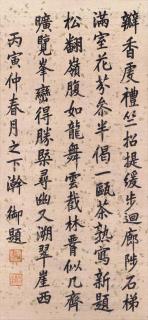 瓣香虔禮竺招提緩步迴廊陟石梯
滿室花芬參半偈一甌茶熟寫新題
松翻嶺腹如龍舞雲截林霄似几齊
曠覽峯巒得勝槩尋幽又溯翠崖西
丙寅仲春月之下澣御題